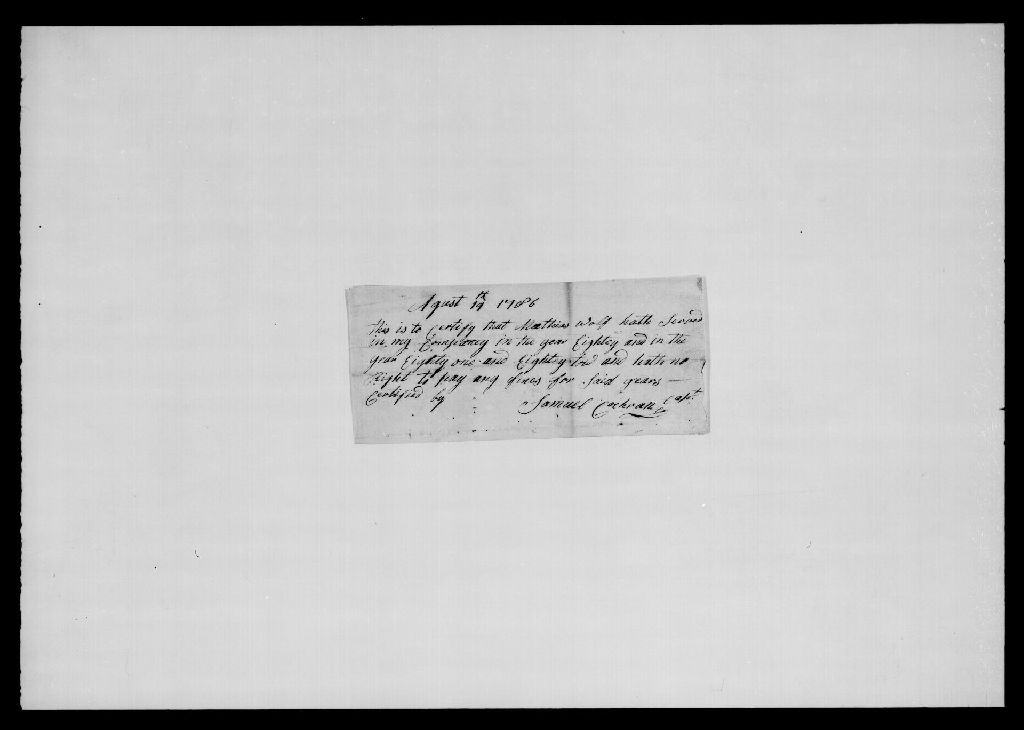 Agust 14th 1786
this is to Certify that Mathias Wolf hath Served
in my Compianey in the year Eighty and in the
year Eighty one and Eighty two and hath no
Right to pay any fines for Said years —
Certified by Samuel Cochran Capt